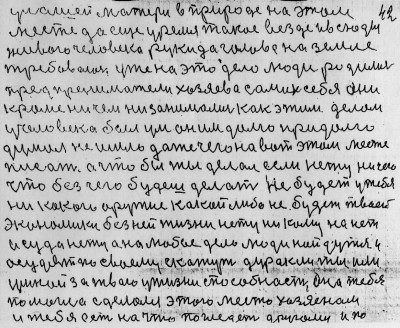 у нашей матери в природе на этом 42
месте да еще время такое везде и всюду
живого человека руки да голова на земле
требовалась уже на это дело люди родились
предприниматели хозяева самих себя они
кроме ничем ни занимались как этим делом
у человека был ум он им долго придолго
думал не шило да нечего на вот этом месте
а что бы ты делал если нету ничего
что без чего будеш делать Не будет у тебя
ни какого оружие какой либо не будет твоей
Экономики без ней жизни нету ни кому на нет
и суда нету а на любое дело люди найдутся и
осудят по своему скажут дурак ли ты или
умной за твою у жизни способность Она тебя
помогла сделала этого место хозяеном
и тебя есть на что другому и по